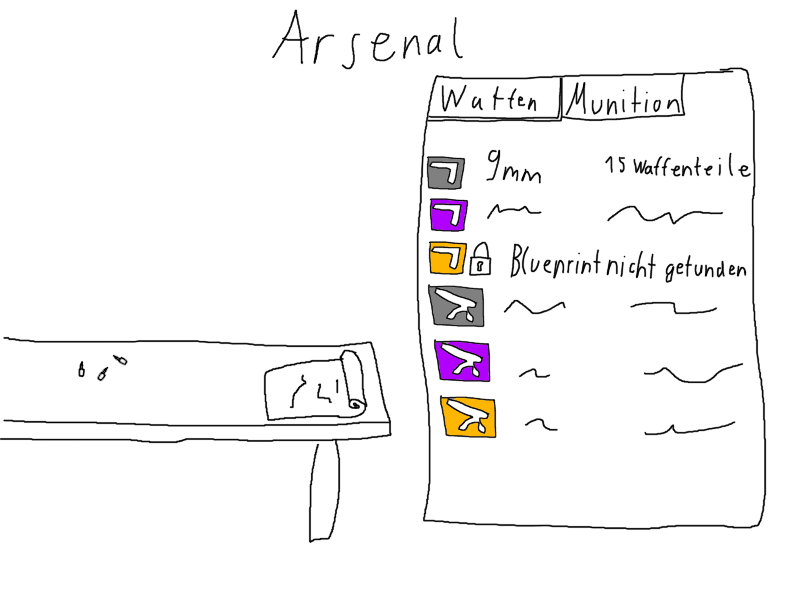 Arsenal
Waffen Munition
9mm 15 Waffenteile
Blueprint nicht gefunden